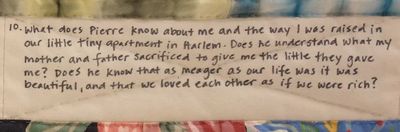 10. What does Pierre know about me and the way I was raised in
our little tiny apartment in Harlem. Does he understand what my
mother and father sacrificed to give me the little they gave
me? Does he know that as meager as our life was it was
beautiful, and that we loved each other as if we were rich?